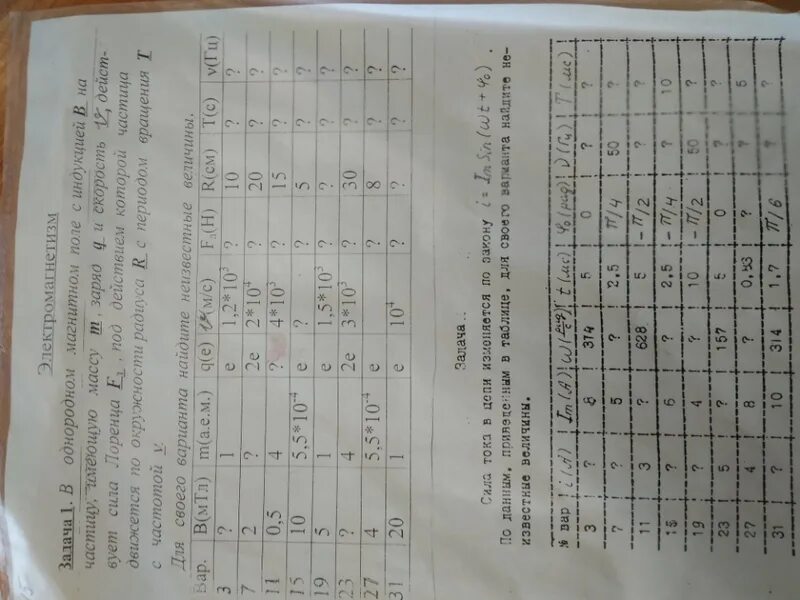 Электромагнетизм
Задача 1. В однородном магнитном поле с индукцией B на
частицу, имеющую массу m, заряд q и скорость v, дейст-
вует сила Лоренца Fл, под действием которой частица
движется по окружности радиуса R с периодом вращения T
с частотой ν.
Для своего варианта найдите неизвестные величины.
Вар. B(мТл) m(а.е.м.) q(e) v(м/с) Fл(Н) R(см) T(с) ν(Гц)
3 ? 1 e 1,2*10³ ? 10 ? ?
7 2 ? 2e 2*10⁴ ? 20 ? ?
11 0,5 4 ? 4*10³ ? 15 ? ?
15 10 5,5*10⁻⁴ e ? ? 5 ? ?
19 5 1 e 1,5*10³ ? ? ? ?
23 ? 4 2e 3*10³ ? 30 ? ?
27 4 5,5*10⁻⁴ e ? ? 8 ? ?
31 20 1 e 10⁴ ? ? ? ?
Задача.
Сила тока в цепи изменяется по закону i = Im Sin(ωt + φ₀).
По данным, приведенным в таблице, для своего варианта найдите не-
известные величины.
№ вар ! i(А) ! Im(А) ! ω ! t(мс) ! φ₀(рад) ! ν(Гц) ! T(мс) !
3 ! ? ! 8 ! 314 ! 5 ! 0 ! ? ! ?
7 ! ? ! 5 ! ? ! 2,5 ! π/4 ! 50 ! ?
11 ! 3 ! ? ! 628 ! 5 ! -π/2 ! ? ! ?
15 ! ? ! 6 ! ? ! 2,5 ! -π/4 ! ? ! 10
19 ! ? ! 4 ! ? ! 10 ! -π/2 ! 50 ! ?
23 ! 5 ! ? ! 157 ! 5 ! 0 ! ? ! ?
27 ! 4 ! 8 ! ? ! 0,83 ! ? ! ? ! 5
31 ! ? ! 10 ! 314 ! 1,7 ! π/6 ! ? ! ?